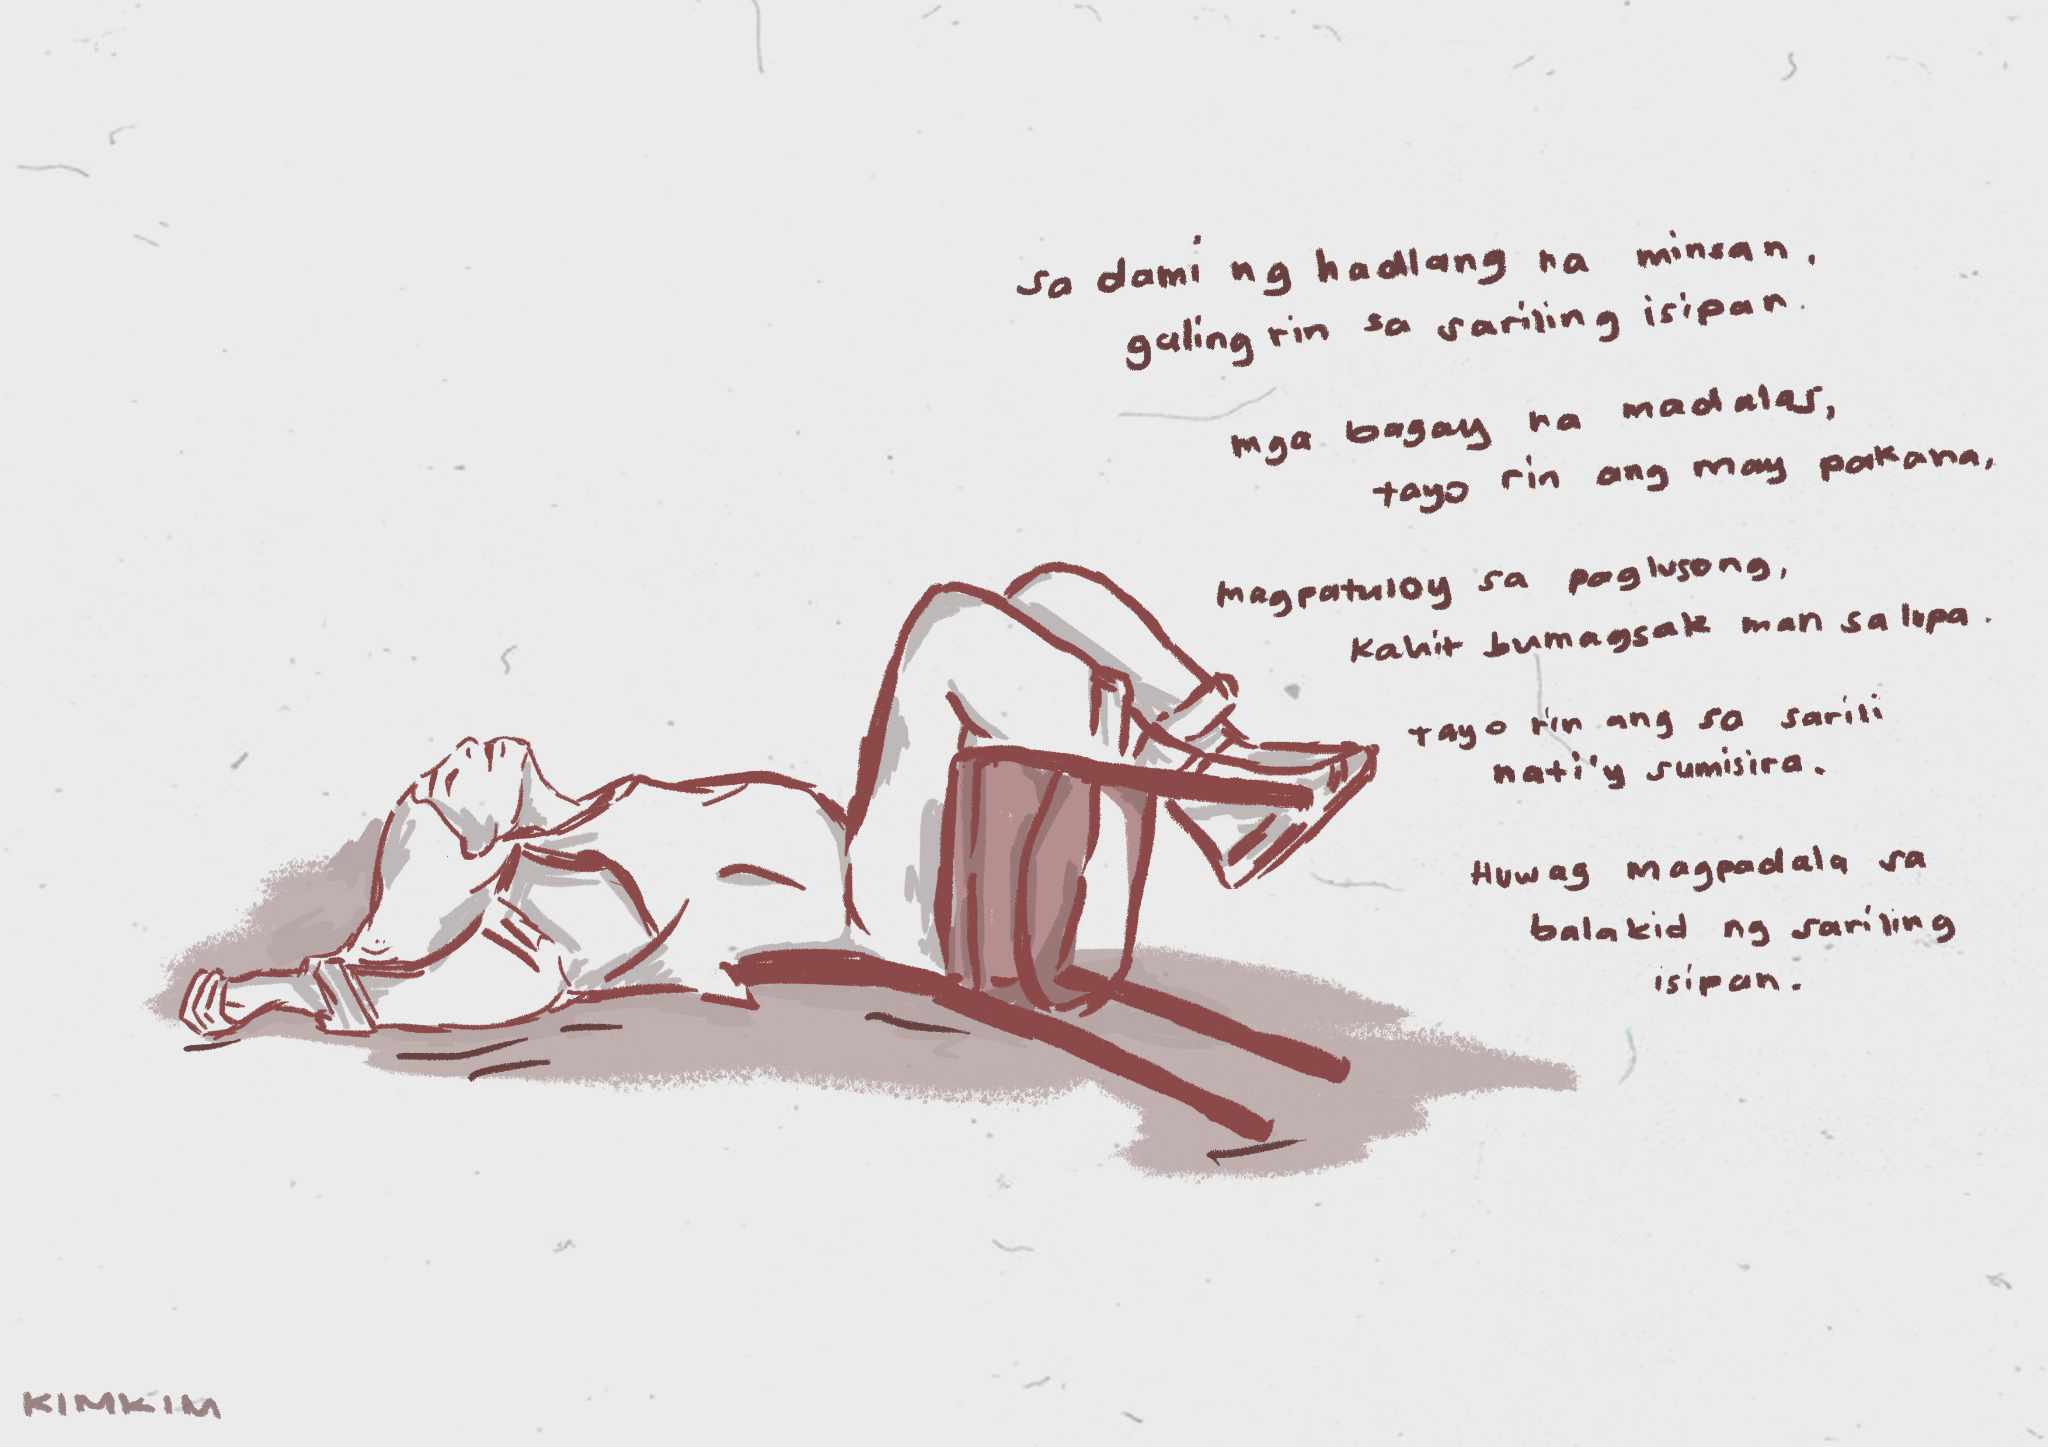 sa dami ng hadlang na minsan,
galing rin sa sariling isipan.
mga bagay na madalas,
tayo rin ang may pakana,
magpatuloy sa paglusong,
kahit bumagsak man sa lupa.
tayo rin ang sa sarili
nati'y sumisira.
Huwag magpadala sa
balakid ng sariling
isipan.
KIMKIM